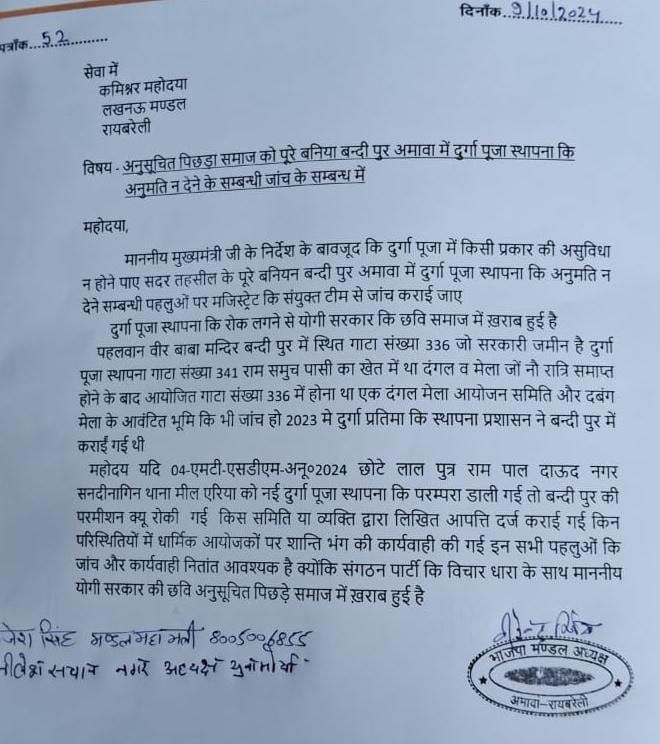 पत्रॉंक...52............
दिनाँक..9/10/2024......
सेवा में
कमिश्नर महोदया
लखनऊ मण्डल
रायबरेली
विषय - अनुसूचित पिछड़ा समाज को पूरे बनिया बन्दी पुर अमावा में दुर्गा पूजा स्थापना कि
अनुमति न देने के सम्बन्धी जांच के सम्बन्ध में
महोदया,
माननीय मुख्यमंत्री जी के निर्देश के बावजूद कि दुर्गा पूजा में किसी प्रकार की असुविधा
न होने पाए सदर तहसील के पूरे बनियन बन्दी पुर अमावा में दुर्गा पूजा स्थापना कि अनुमति न
देने सम्बन्धी पहलुओं पर मजिस्ट्रेट कि संयुक्त टीम से जांच कराई जाए
दुर्गा पूजा स्थापना कि रोक लगने से योगी सरकार कि छवि समाज में ख़राब हुई है
पहलवान वीर बाबा मन्दिर बन्दी पुर में स्थित गाटा संख्या 336 जो सरकारी जमीन है दुर्गा
पूजा स्थापना गाटा संख्या 341 राम समुच पासी का खेत में था दंगल व मेला जों नौ रात्रि समाप्त
होने के बाद आयोजित गाटा संख्या 336 में होना था एक दंगल मेला आयोजन समिति और दबंग
मेला के आवंटित भूमि कि भी जांच हो 2023 मे दुर्गा प्रतिमा कि स्थापना प्रशासन ने बन्दी पुर में
कराई गई थी
महोदय यदि 04-एमटी-एसडीएम-अनू०2024 छोटे लाल पुत्र राम पाल दाऊद नगर
सनदीनागिन थाना मील एरिया को नई दुर्गा पूजा स्थापना कि परम्परा डाली गई तो बन्दी पुर की
परमीशन क्यू रोकी गई किस समिति या व्यक्ति द्वारा लिखित आपत्ति दर्ज कराई गई किन
परिस्थितियों में धार्मिक आयोजकों पर शान्ति भंग की कार्यवाही की गई इन सभी पहलुओं कि
जांच और कार्यवाही नितांत आवश्यक है क्योंकि संगठन पार्टी कि विचार धारा के साथ माननीय
योगी सरकार की छवि अनुसूचित पिछड़े समाज में ख़राब हुई है
सिंह मण्डल महा मंत्री 8005006855
नगर अध्यक्ष युवा मोर्चा
भाजपा मण्डल अध्यक्ष
अमावा-रायबरेली